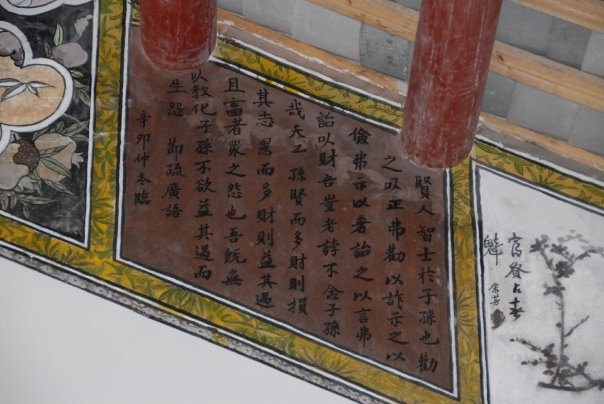 賢人智士於子孫也勸
之以正弗勸以詐示之以
儉弗示以奢詒之以言弗
詒以財吾豈老誖不念子孫
哉夫子孫賢而多財則損
其志愚而多財則益其過
且富者衆之怨也吾既無
以教化子孫不欲益其過而
生怨 節疏廣語
辛卯仲冬臨
占春
魁